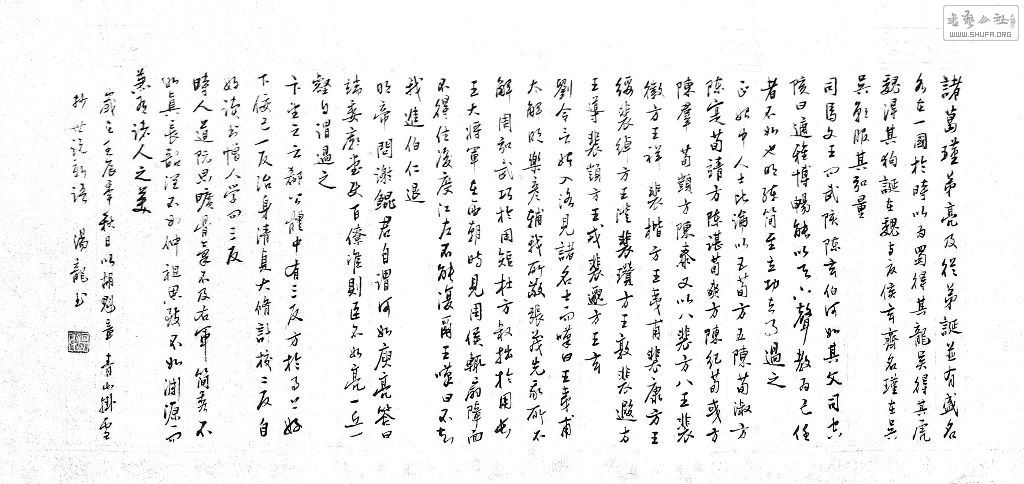 諸葛瑾弟亮及從弟誕並有盛名
各在一國於時以為蜀得其龍吳得其虎
魏得其狗誕在魏與夏侯玄齊名瑾在吳
吳朝服其弘量
司馬文王問武陔陳玄伯何如其父司空
陔曰通雅博暢能以天下聲教為己任
者不如也明練簡至立功立事過之
正始中人士比論以五荀方五陳荀淑方
陳寔荀靖方陳諶荀爽方陳紀荀彧方
陳羣荀顗方陳泰又以八裴方八王裴
徽方王祥裴楷方王夷甫裴康方王
綏裴綽方王澄裴瓚方王敦裴遐方
王導裴頠方王戎裴邈方王玄
劉令言始入洛見諸名士而嘆曰王夷甫
太解明樂彥輔我所敬張茂先我所不
解周弘武巧於用短杜方叔拙於用長
王大將軍在西朝時見周侯輒扇障面
不得住後度江左不能復爾王嘆曰不知
我進伯仁退
明帝問謝鯤君自謂何如庾亮答曰
端委廟堂使百僚準則臣不如亮一丘一
壑自謂過之
卞望之云郗公體中有三反方於事上好
下佞己一反治身清貞大脩計校二反自
好讀書憎人學問三反
時人道阮思曠骨氣不及右軍簡秀不
如真長韶潤不如仲祖思致不如淵源而
兼有諸人之美
歲之壬辰年秋日以胡魁章青山掛雪
抄世說新語 湯龍書
書法公社
WWW.SHUFA.ORG